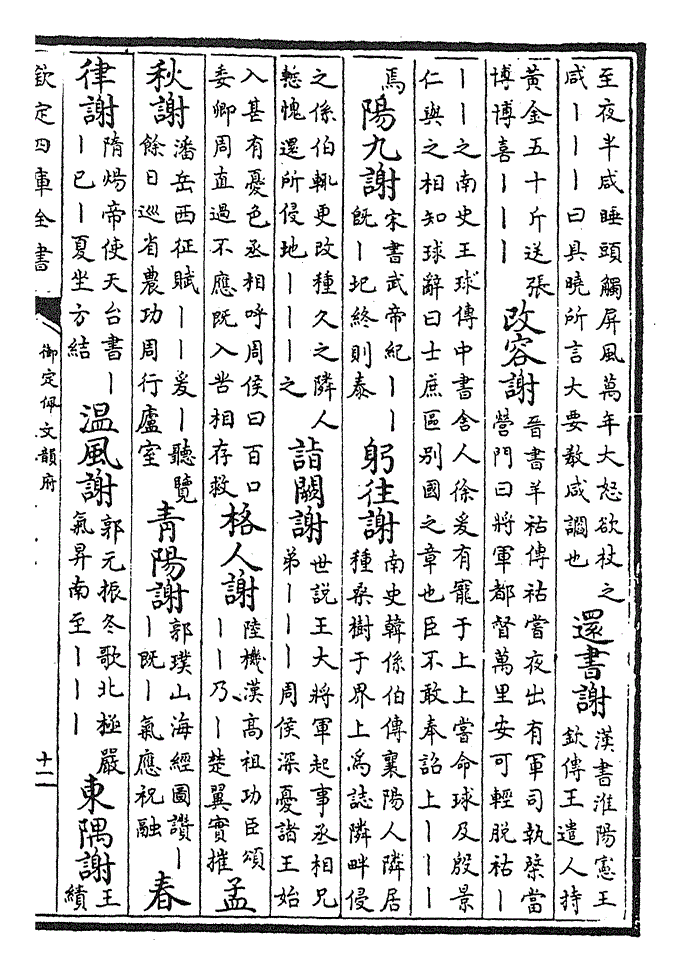 至夜半咸睡頭觸屏風萬年大怒欲杖之
咸｜｜｜曰具曉所言大要教咸讇也
還書謝
漢書淮陽憲王
欽傳王遣人持
黃金五十斤送張
博博喜｜｜｜
改容謝
晉書羊祜傳祜當夜出有軍司執棨當
營門曰將軍都督萬里安可輕脫祜｜
｜｜之南史王球傳中書舍人徐爰有寵于上上嘗命球及殷景
仁與之相知球辭曰士庶區別國之章也臣不敢奉詔上｜｜｜
焉
陽九謝
宋書武帝紀｜｜
既｜圮終則泰
躬往謝
南史韓係伯傳襄陽人隣居
種桑樹于界上爲誌隣畔侵
之係伯輒更改種久之隣人
慙愧還所侵地｜｜｜之
詣闕謝
世説王大將軍起事丞相兄
弟｜｜｜周侯深憂諸王始
入甚有憂色丞相呼周侯曰百口
委卿周直過不應既入苦相存救
格人謝
陸機漢高祖功臣頌
｜｜乃｜楚翼實摧
孟
秋謝
潘岳西征賦｜｜爰｜聽覽
餘日巡省農功周行廬室
青陽謝
郭璞山海經圖讚｜
｜既｜氣應祝融
春
律謝
隋煬帝使天台書｜
｜已｜夏坐方結
温風謝
郭元振冬歌北極嚴
氣昇南至｜｜｜
東隅謝
王
績
欽定四庫全書
御定佩文韻府
十二